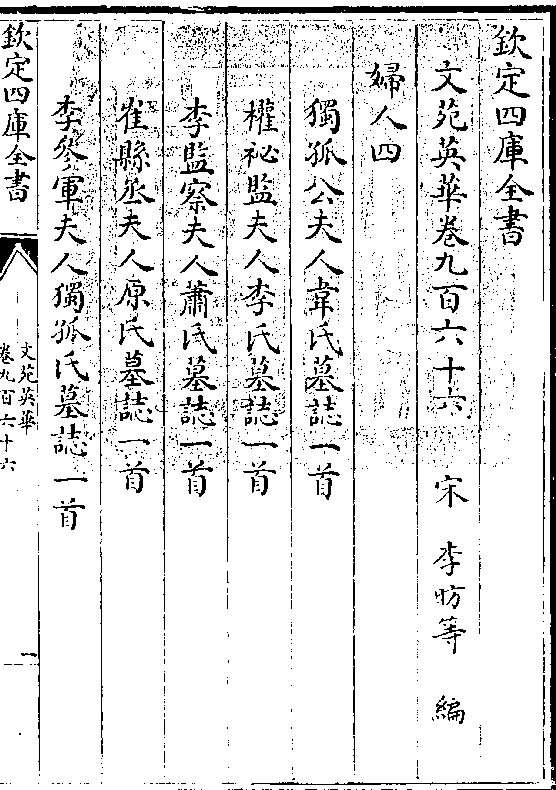 欽定四庫全書
文苑英華卷九百六十六　宋　李昉等　編
婦人四
獨孤公夫人韋氏墓誌一首
權祕監夫人李氏墓誌一首
李監察夫人蕭氏墓誌一首
崔縣丞夫人原氏墓誌一首
李參軍夫人獨孤氏墓誌一首
欽定四庫全書
文苑英華
卷九百六十六
一